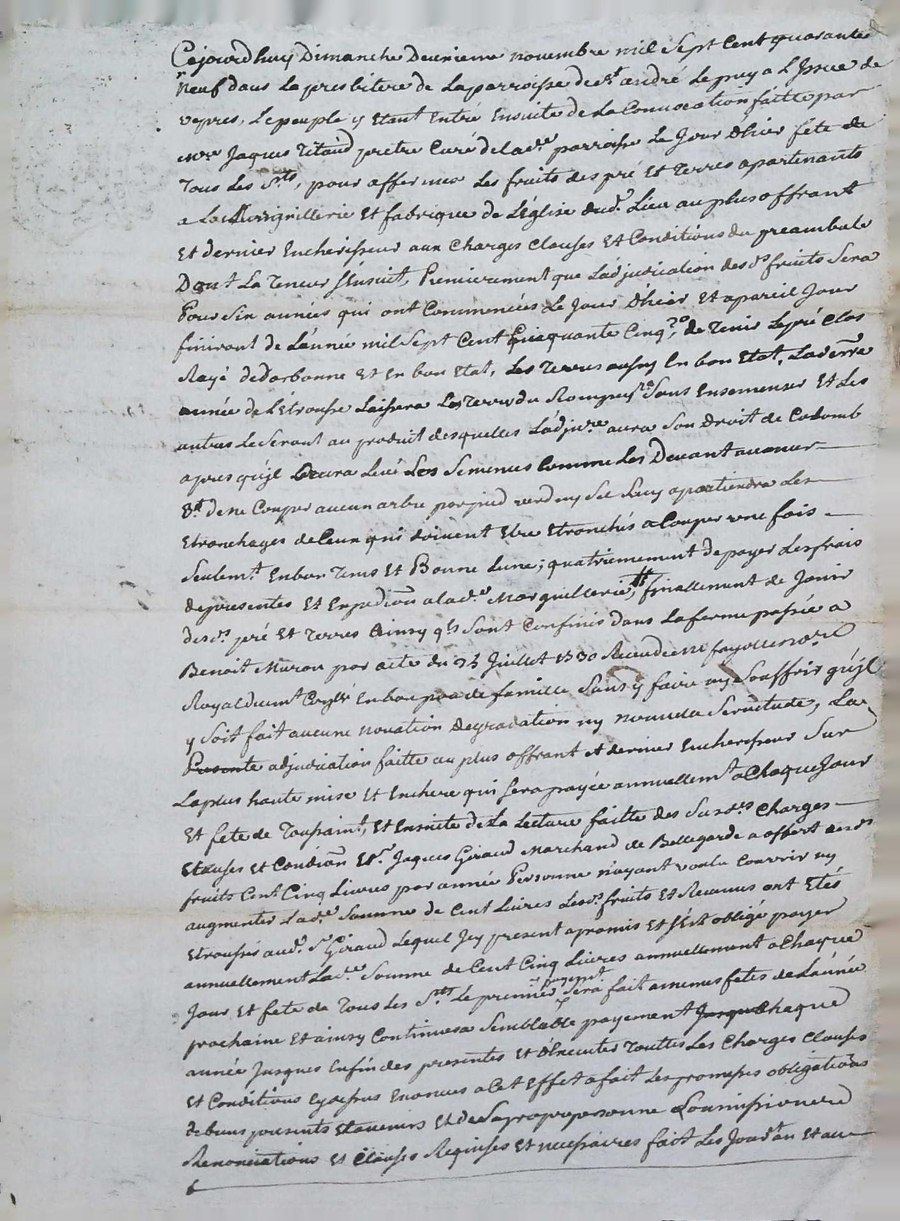 Cejourdhuy Dimanche Deuxieme novembre mil Sept Cent quarante
neuf dans La presbitere de La parroisse de st andré Le puy a L'Issue de
vepres, Le peuple y Etant Entré Ensuite de La Convocation faitte par
mre Jaques Titaud pretre Curé de lade parroisse Le Jour d'hier fete de
Tous Les Sts, pour affermer Les fruits des pré Et Terres apartenants
a La Marguillerie Et fabrique de L'Eglise dud. Lieu au plus offrant
Et dernier Encherisseur aux Charges Clauses Et Conditions du preambule
Dont La Teneur s'Ensuit, Premierement que Ladjudication des ds fruits Sera
Pour Six années qui ont Commencées Le Jour d'hier Et a pareil Jour
finiront de L'année mil Sept Cent Cinquante Cinq, 2o de Tenir Le pré Clos
Rayé de Et En bon Etat, Les Terres aussy En bon Etat, La derre
année de L'Etrousse Laissera Les Terres du Sans Ensemencer Et Les
autres Le Seront au produit desquelles L'adjre aura Son Droit de Colomb
apres qu'jl aura Levé Les Semences Comme Les Devant
de ne Couper aucun arbre par pied verd ny Sec Luy apartiendra Les
Etronchages de Ceux qui doivent Etre Etronchés a Couper une fois
Seulemt En bon Tems Et Bonne Lune; quatriemement de payer Les frais
des presentes Et Expedion a lade Marguillerie, finallement de Jouir
des ds pré Et Terres Ainsy qls Sont Confinés dans La ferme passée a
Benoit Murou par acte du 25 Juillet 1730 nore
Royal En bon pere de famille Sans y faire ny Souffrir qu'jl
y Soit fait aucune novation degradation ny nouvelle Servitude, La
Presente adjudication faitte au plus offrant et dernier Encherisseur Sur
La plus haute mise Et Enchere qui Sera payée annuellemt a Chaque Jour
Et fete de Toussaint, Et Ensuite de La Lecture faitte des Susdes Charges
Clauses et Condion Sr Jaques Giraud Marchand de Bellegarde a offert desds
fruits Cent Cinq Livres par année Personne n'ayant voulu Couvrir ny
augmenter Lade Somme de Cent Livres Lesds fruits Et Revenus ont Etés
Etroussés aud. Sr Giraud Lequel Jcy present a promis Et S'Est obligé payer
annuellement Lade Somme de Cent Cinq Livres annuellement a Chaque
Jour Et fete de Tous Les Sts Le premier payemt Sera fait a memes fetes de L'année
prochaine Et ainsy Continuera Semblable payement Jusqu Chaque
année Jusques Enfin des presentes Et d'Executer Touttes Les Charges Clauses
Et Conditions Cydessus Enoncés a Cet Effet a fait Les promesses obligations
de biens presents Et avenirs Et de Sa propre personne
Renonciations Et Clauses Requises Et necessaires fait Les Jour an Et au